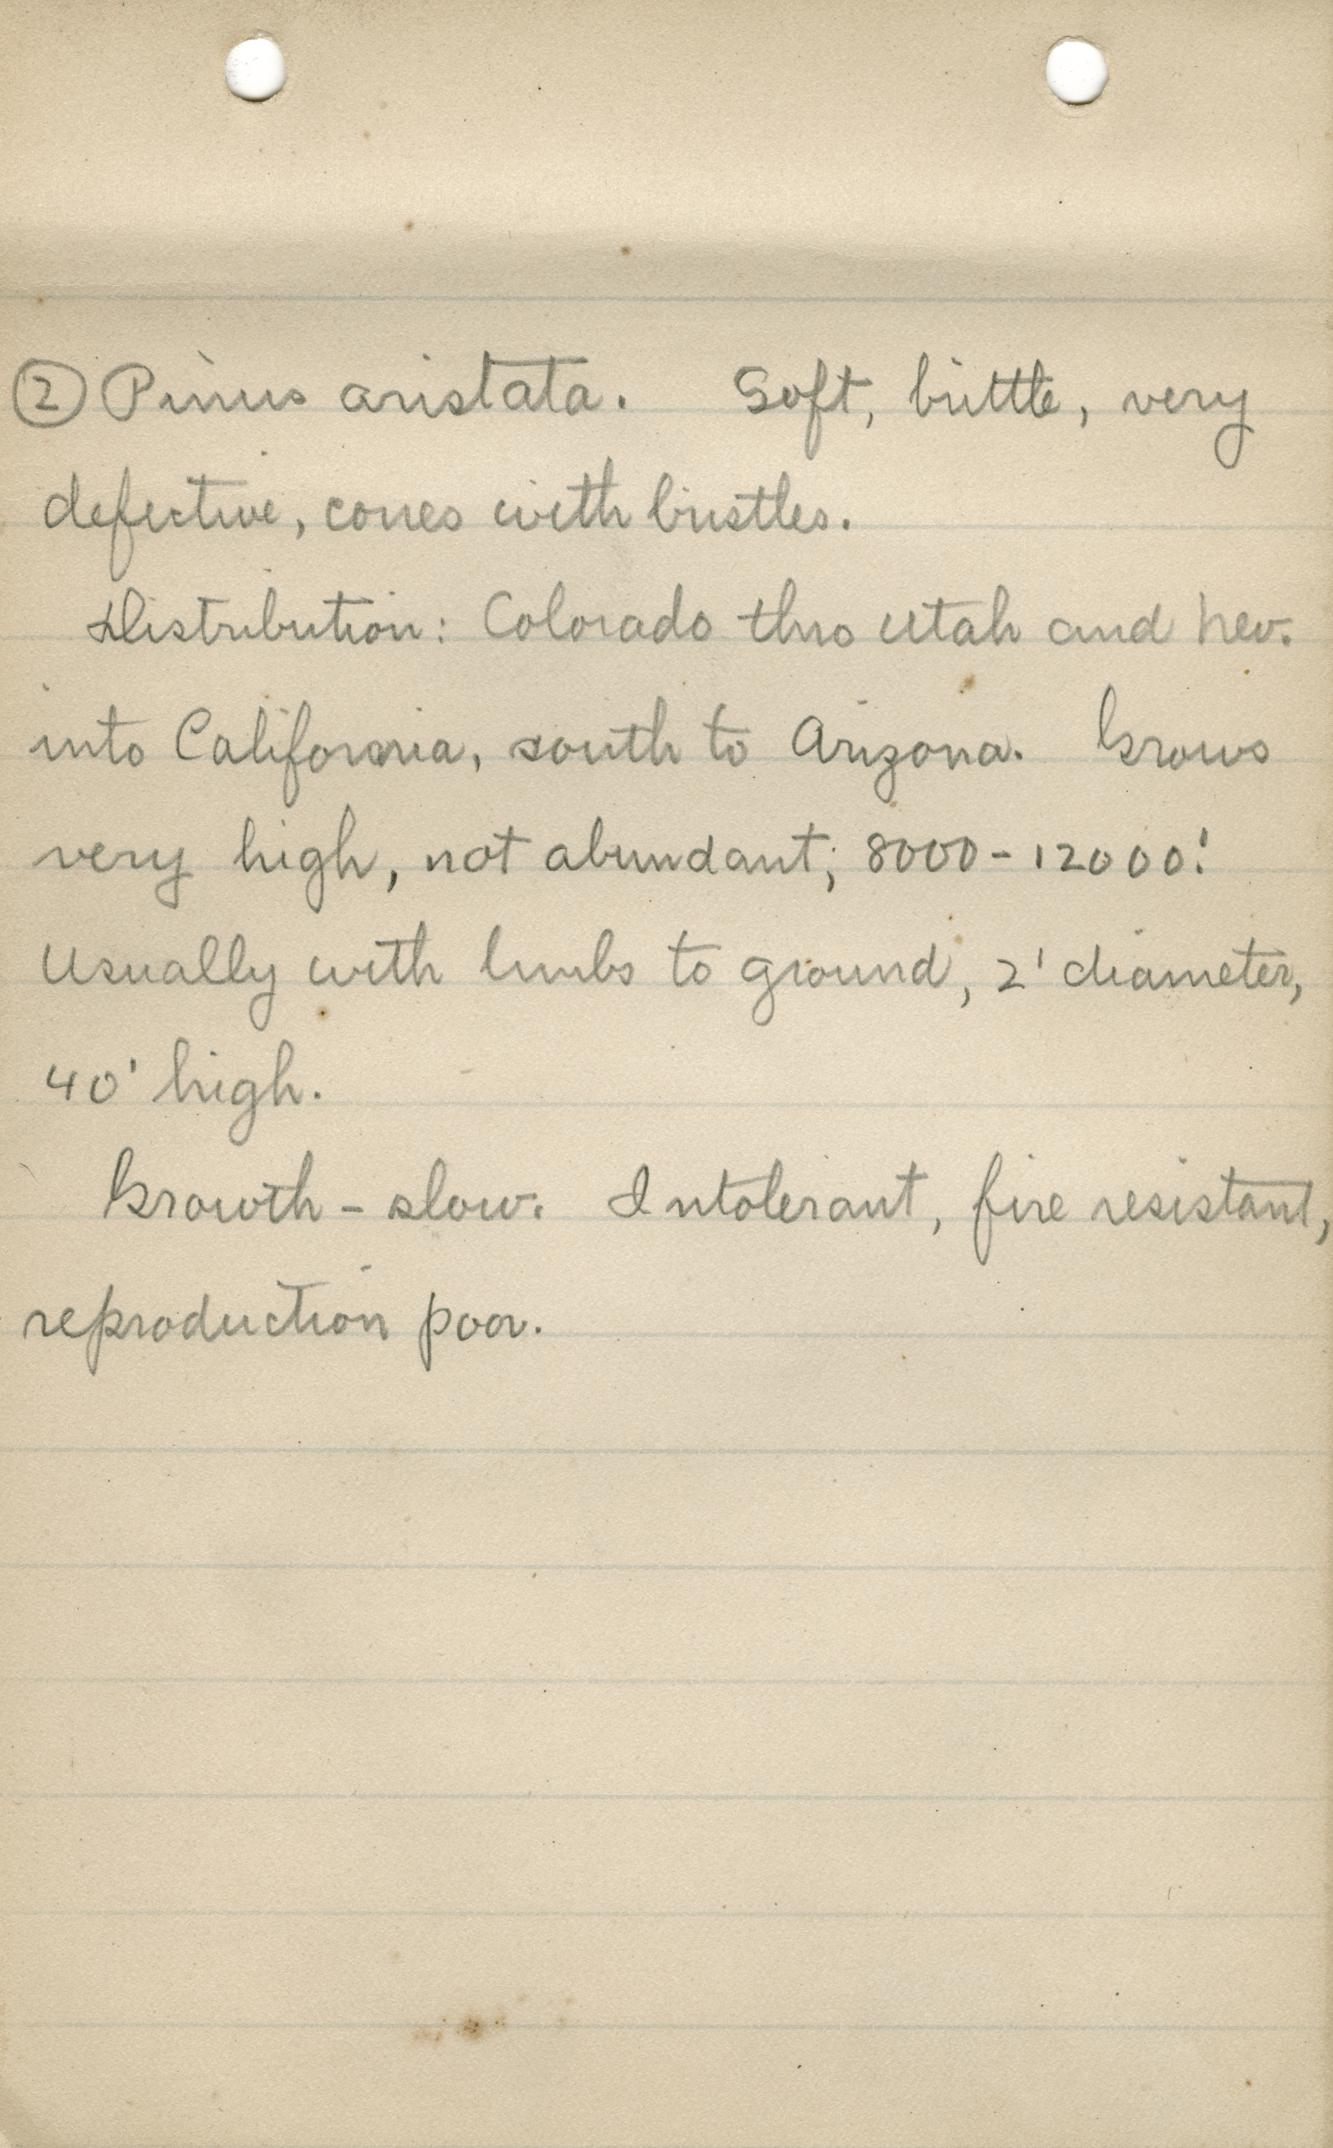 ② Pinus aristata. Soft, brittle, very
defective, cones with bristles.
Distribution: Colorado thro Utah and Nev.
into California, south to Arizona. Grows
very high, not abundant; 8000-12000'.
Usually with limbs to ground, 2' diameter,
40' high.
Growth - slow. Intolerant, fire resistant,
reproduction poor.